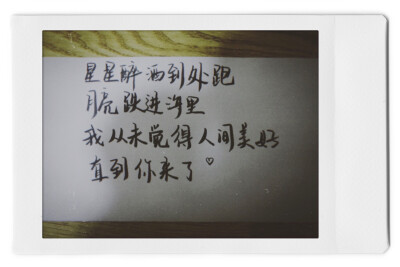 星星醉酒到处跑
月亮跌进海里
我从未觉得人间美好
直到你来了♡